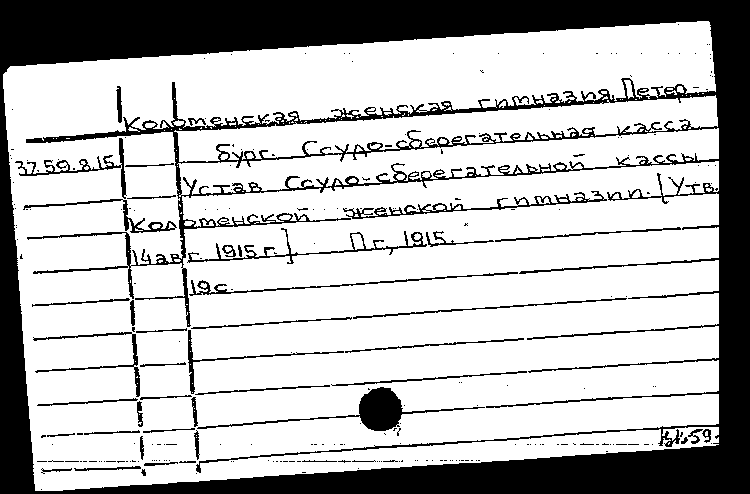 Коломенская женская гимназия, Петер-
бург. Ссудо-сберегательная касса
37.59.8.15
Устав Ссудо-сберегательной кассы
Коломенской женской гимназии. [Утв.
14 авг. 1915 г.]. Пг., 1915.
19с.
59